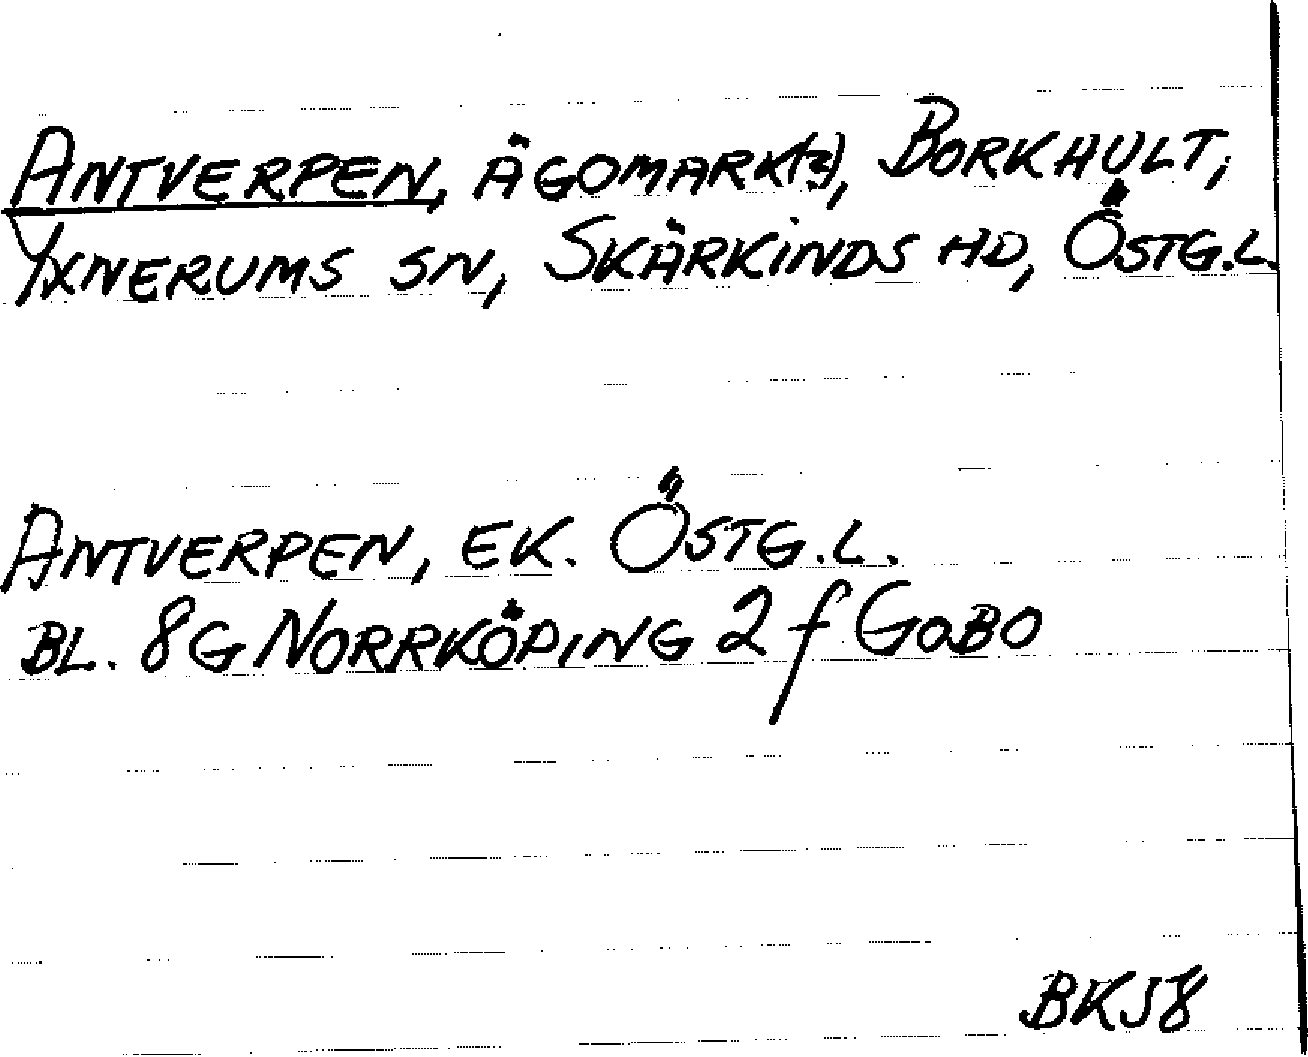 ANTVERPEN, ÄGOMARK(3), BORKHULT,
YXNERUMS SN, SKÄRKINDS HD, ÖSTG.L.
ANTVERPEN, EK. ÖSTG.L.
BL. 8G NORRKÖPING 2 f GOBO
BK58